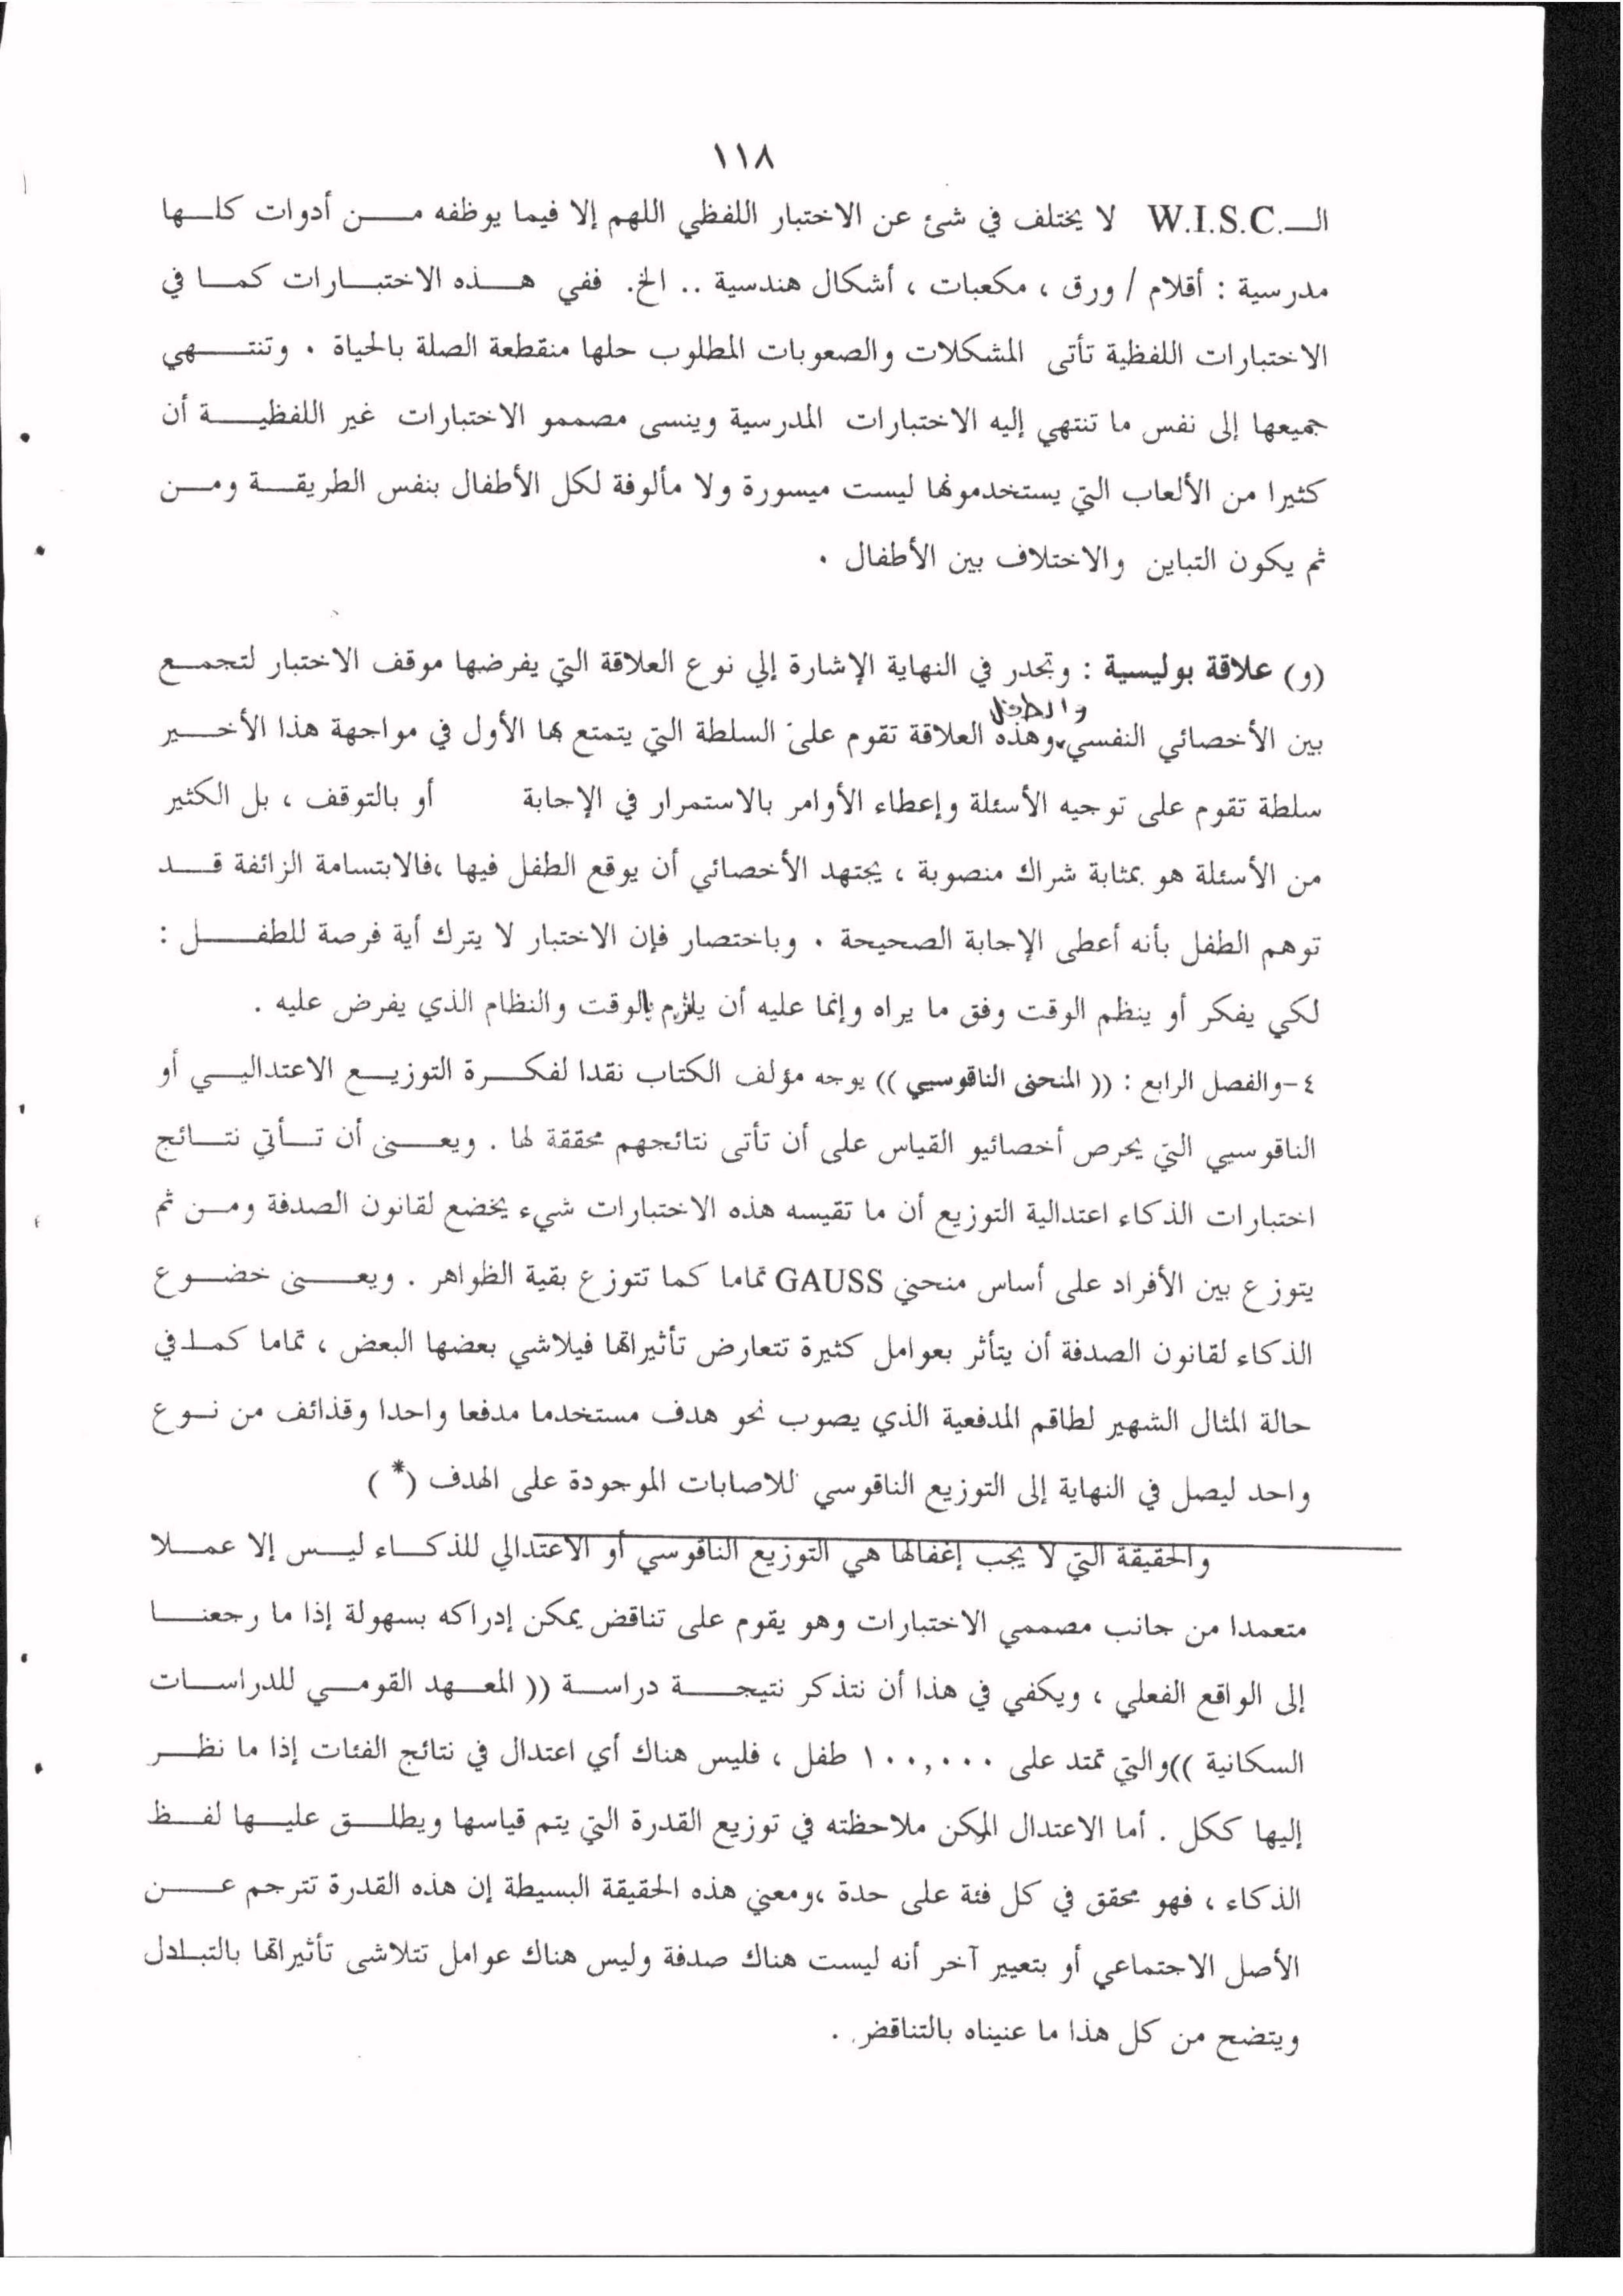 ١١٨
الـ.W.I.S.C لا يختلف في شئ عن الاختبار اللفظي اللهم إلا فيما يوظفه من أدوات كلها
مدرسية : أقلام / ورق ، مكعبات ، أشكال هندسية .. الخ. ففي هذه الاختبارات كما في
الاختبارات اللفظية تأتى المشكلات والصعوبات المطلوب حلها منقطعة الصلة بالحياة . وتنتهي
جميعها إلى نفس ما تنتهي إليه الاختبارات المدرسية وينسى مصممو الاختبارات غير اللفظية أن
كثيرا من الألعاب التي يستخدمونها ليست ميسورة ولا مألوفة لكل الأطفال بنفس الطريقة ومن
ثم يكون التباين والاختلاف بين الأطفال .
(و) علاقة بوليسية : وتجدر في النهاية الإشارة إلي نوع العلاقة التي يفرضها موقف الاختبار لتجمع
والطفل
بين الأخصائي النفسي، وهذه العلاقة تقوم على السلطة التي يتمتع بها الأول في مواجهة هذا الأخير
سلطة تقوم على توجيه الأسئلة وإعطاء الأوامر بالاستمرار في الإجابة أو بالتوقف ، بل الكثير
من الأسئلة هو بمثابة شراك منصوبة ، يجتهد الأخصائي أن يوقع الطفل فيها ،فالابتسامة الزائفة قد
توهم الطفل بأنه أعطى الإجابة الصحيحة . وباختصار فإن الاختبار لا يترك أية فرصة للطفل :
لكي يفكر أو ينظم الوقت وفق ما يراه وإنما عليه أن يلتزم بالوقت والنظام الذي يفرض عليه .
٤-والفصل الرابع : (( المنحنى الناقوسي )) يوجه مؤلف الكتاب نقدا لفكرة التوزيع الاعتدالي أو
الناقوسي التي يحرص أخصائيو القياس على أن تأتى نتائجهم محققة لها . ويعنى أن تأتي نتائج
اختبارات الذكاء اعتدالية التوزيع أن ما تقيسه هذه الاختبارات شيء يخضع لقانون الصدفة ومن ثم
يتوزع بين الأفراد على أساس منحني GAUSS تماما كما تتوزع بقية الظواهر . ويعنى خضوع
الذكاء لقانون الصدفة أن يتأثر بعوامل كثيرة تتعارض تأثيراتها فيلاشي بعضها البعض ، تماما كما في
حالة المثال الشهير لطاقم المدفعية الذي يصوب نحو هدف مستخدما مدفعا واحدا وقذائف من نوع
واحد ليصل في النهاية إلى التوزيع الناقوسي للاصابات الموجودة على الهدف (*)
والحقيقة التي لا يجب إغفالها هي التوزيع الناقوسي أو الاعتدالي للذكاء ليس إلا عملا
متعمدا من جانب مصممي الاختبارات وهو يقوم على تناقض يمكن إدراكه بسهولة إذا ما رجعنا
إلى الواقع الفعلي ، ويكفي في هذا أن نتذكر نتيجة دراسة (( المعهد القومي للدراسات
السكانية ))والتي تمتد على ١٠٠,٠٠٠ طفل ، فليس هناك أي اعتدال في نتائج الفئات إذا ما نظر
إليها ككل . أما الاعتدال الممكن ملاحظته في توزيع القدرة التي يتم قياسها ويطلق عليها لفظ
الذكاء ، فهو محقق في كل فئة على حدة ،ومعني هذه الحقيقة البسيطة إن هذه القدرة تترجم عن
الأصل الاجتماعي أو بتعيير آخر أنه ليست هناك صدفة وليس هناك عوامل تتلاشى تأثيراتها بالتبادل
ويتضح من كل هذا ما عنيناه بالتناقض .